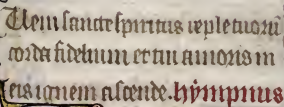 Veni sancte spiritus reple tuorū
corda fidelium et tui amoris in
eis ignem ascende. hympnus